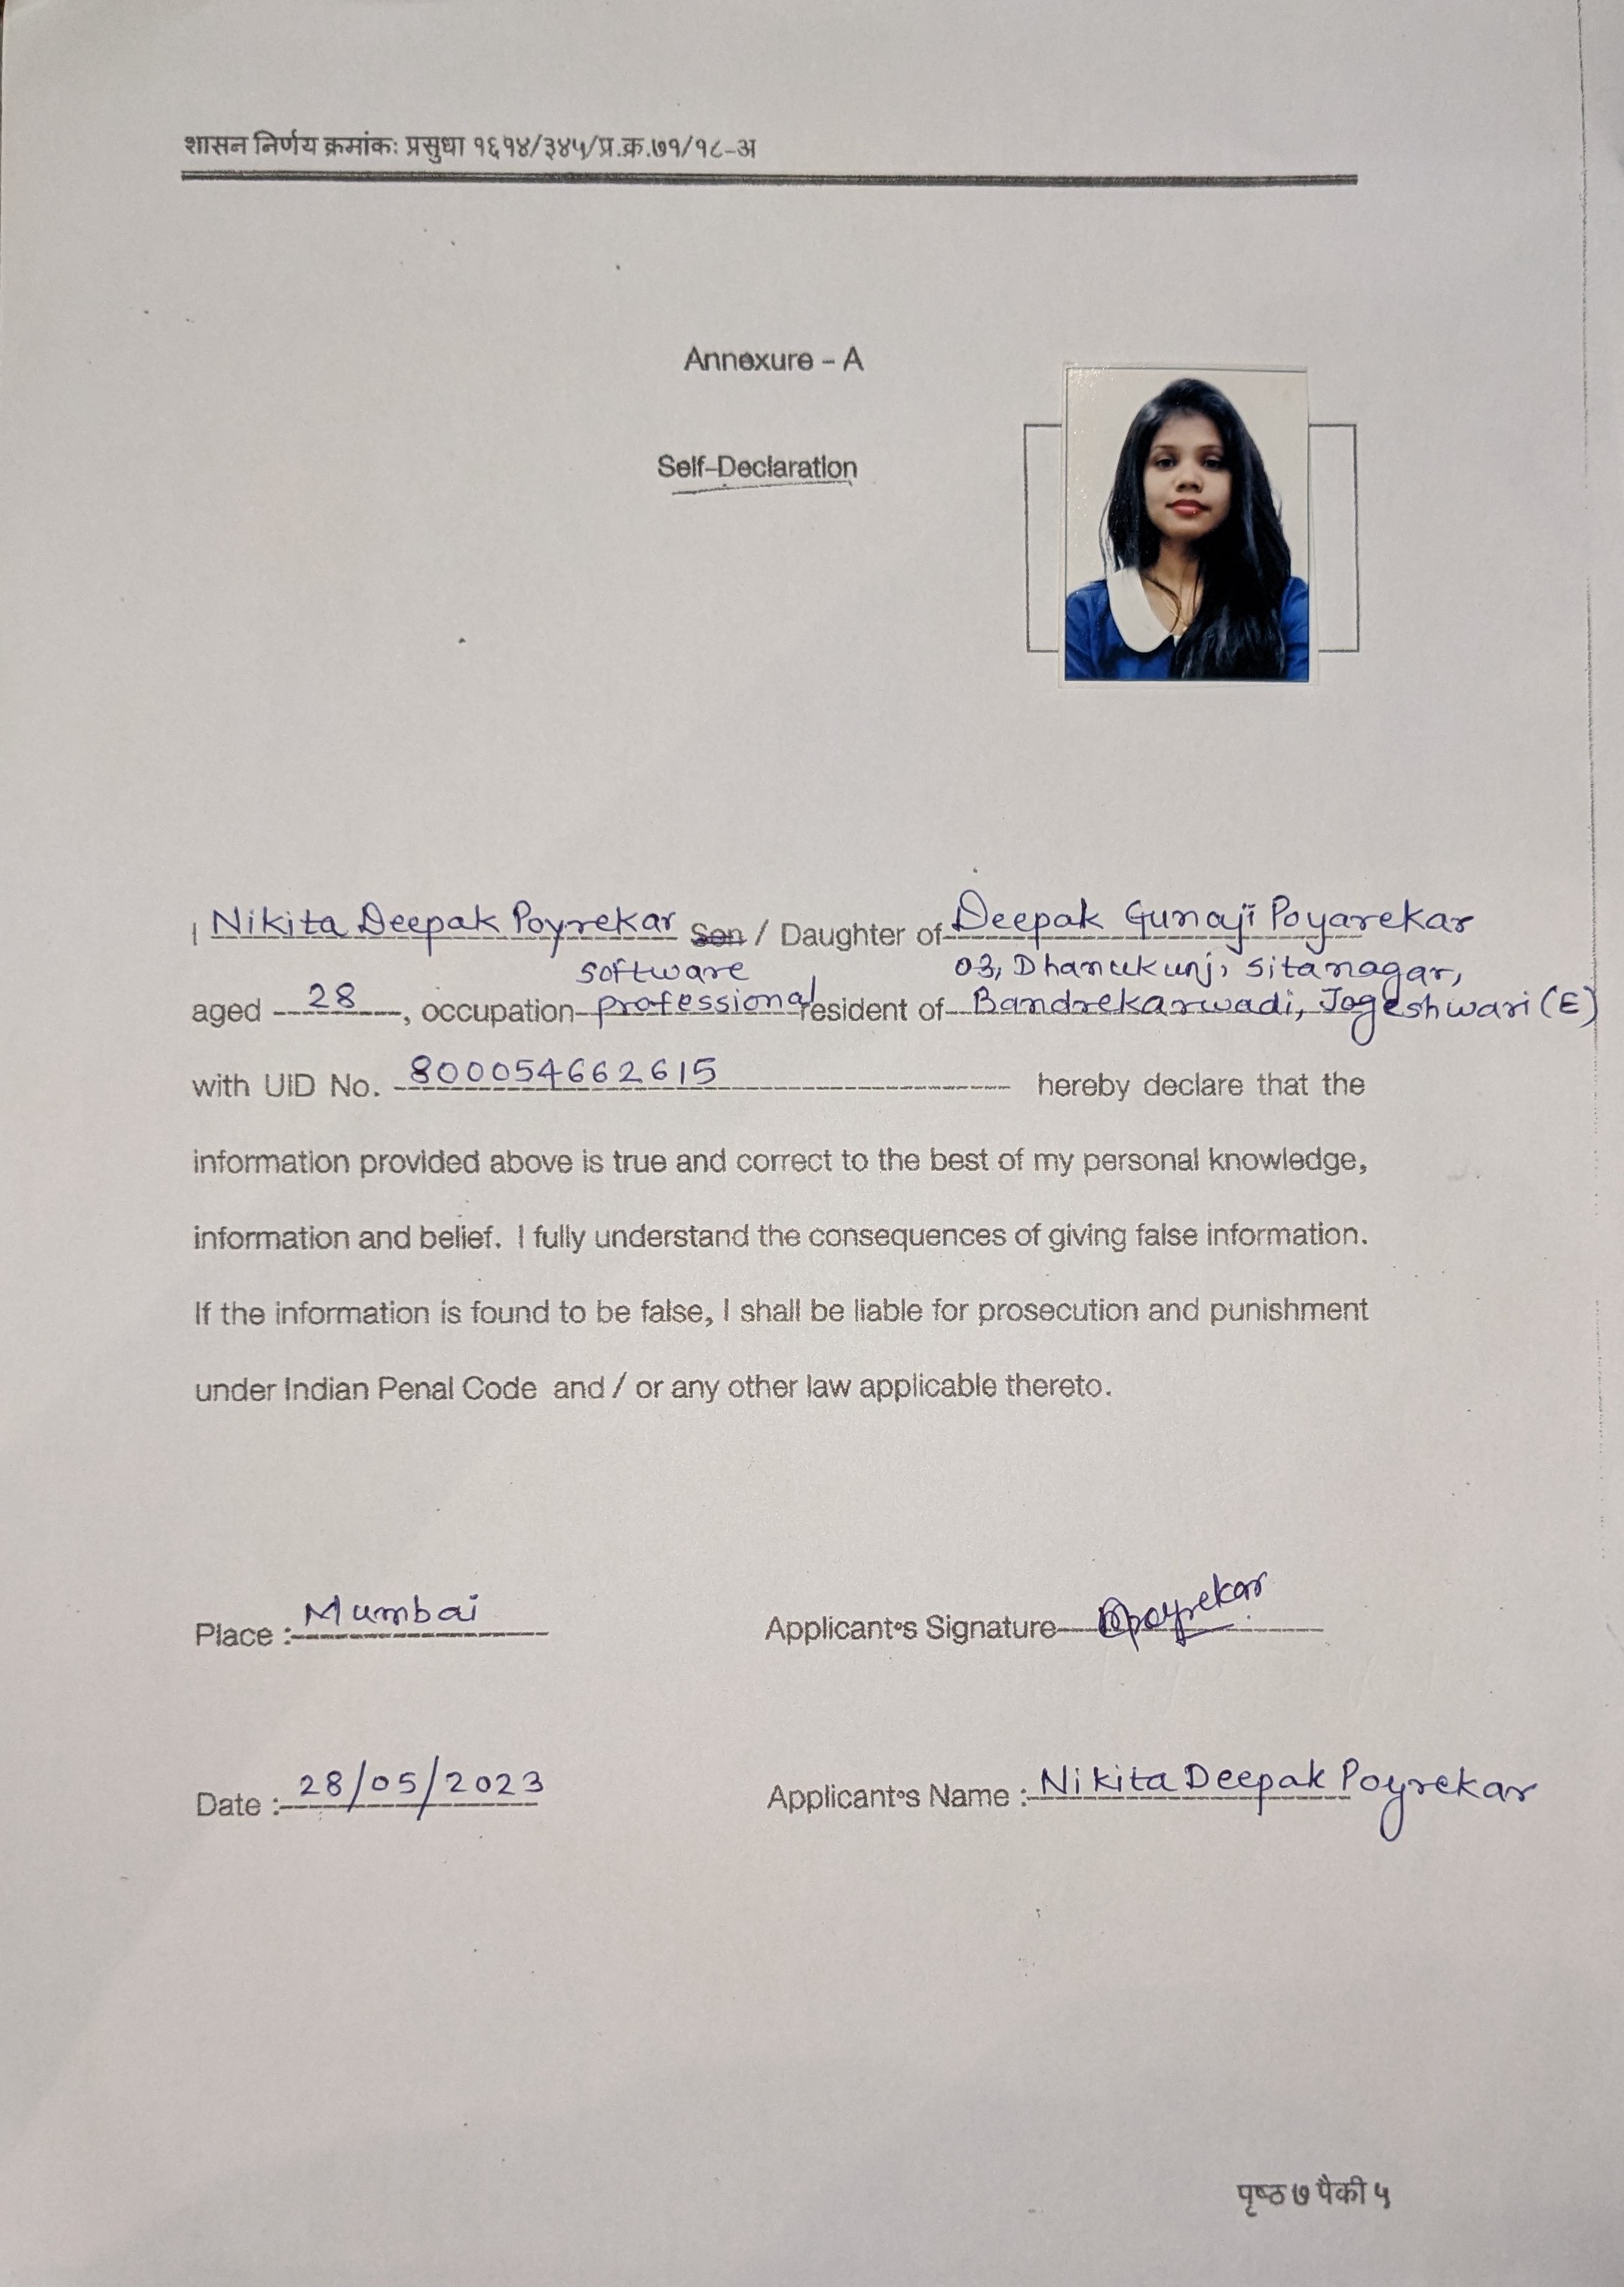 शासन निर्णय क्रमांकः प्रसुधा १६१४/३४५/प्र.क्र.७१/१८-अ
Annexure - A
Self-Declaration
I Nikita Deepak Poyrekar Son / Daughter of Deepak Gunaji Poyarekar
software 03, Dhanukunj, Sitanagar,
aged 28, occupation professional resident of Bandrekarwadi, Jogeshwari (E)
with UID No. 800054662615 hereby declare that the
information provided above is true and correct to the best of my personal knowledge,
information and belief. I fully understand the consequences of giving false information.
If the information is found to be false, I shall be liable for prosecution and punishment
under Indian Penal Code and / or any other law applicable thereto.
Place : Mumbai Applicant's Signature Npoyrekar
Date : 28/05/2023 Applicant's Name : Nikita Deepak Poyrekar
पृष्ठ ७ पैकी ५